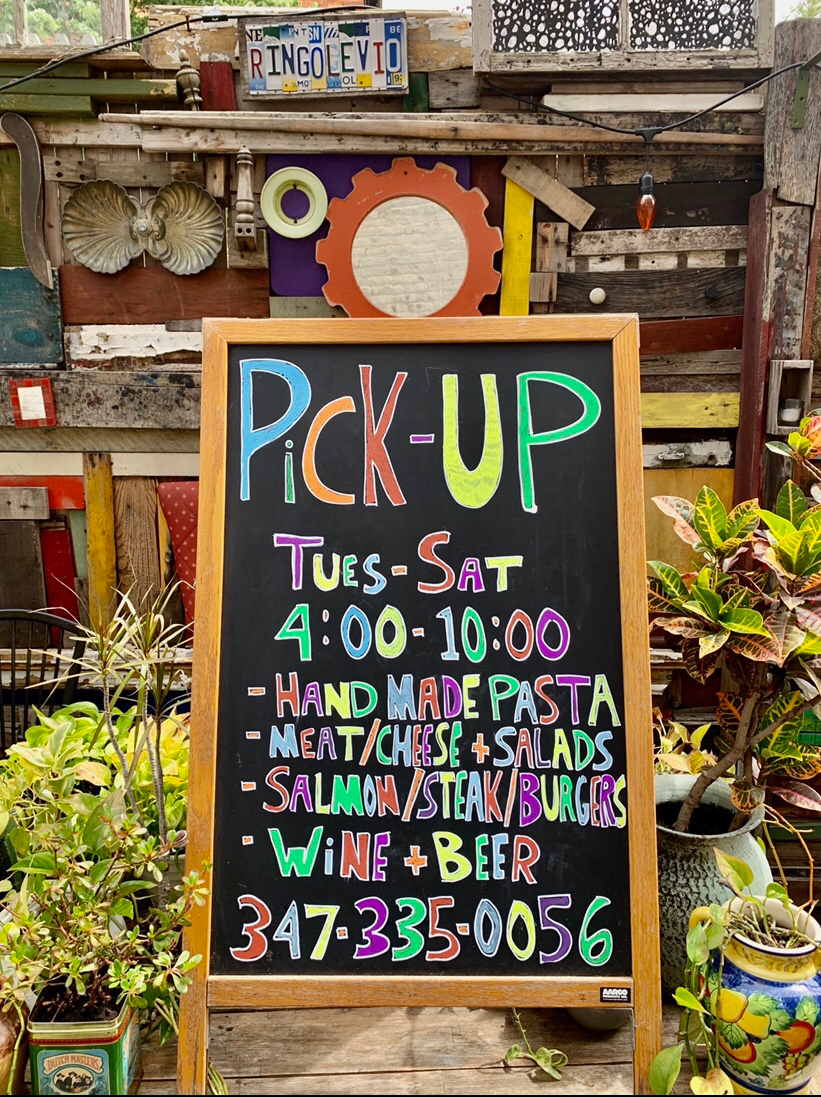 RINGOLEVIO
PiCK-UP
TUES-SAT
4:00-10:00
-HAND MADE PASTA
-MEAT/CHEESE+SALADS
-SALMON/STEAK/BURGERS
-WiNE+BEER
347-335-0056
AARCO
DUTCH MASTERS